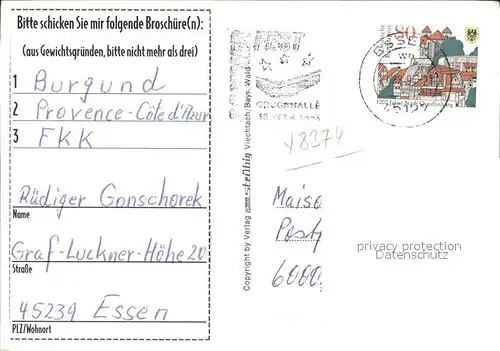 Bitte schicken Sie mir folgende Broschüre(n):
(aus Gewichtsgründen, bitte nicht mehr als drei)
1 Burgund
2 Provence-Côte d'Azur
3 FKK
Rüdiger Gonschorek
Name
Graf-Luckner-Höhe 20
Straße
45239 Essen
PLZ/Wohnort
Copyright by Verlag Viechtach/Bayr. Wald
GRUGAHALLE
ESSEN
80
V8374
Maiso
Postf
6000
privacy protection
Datenschutz